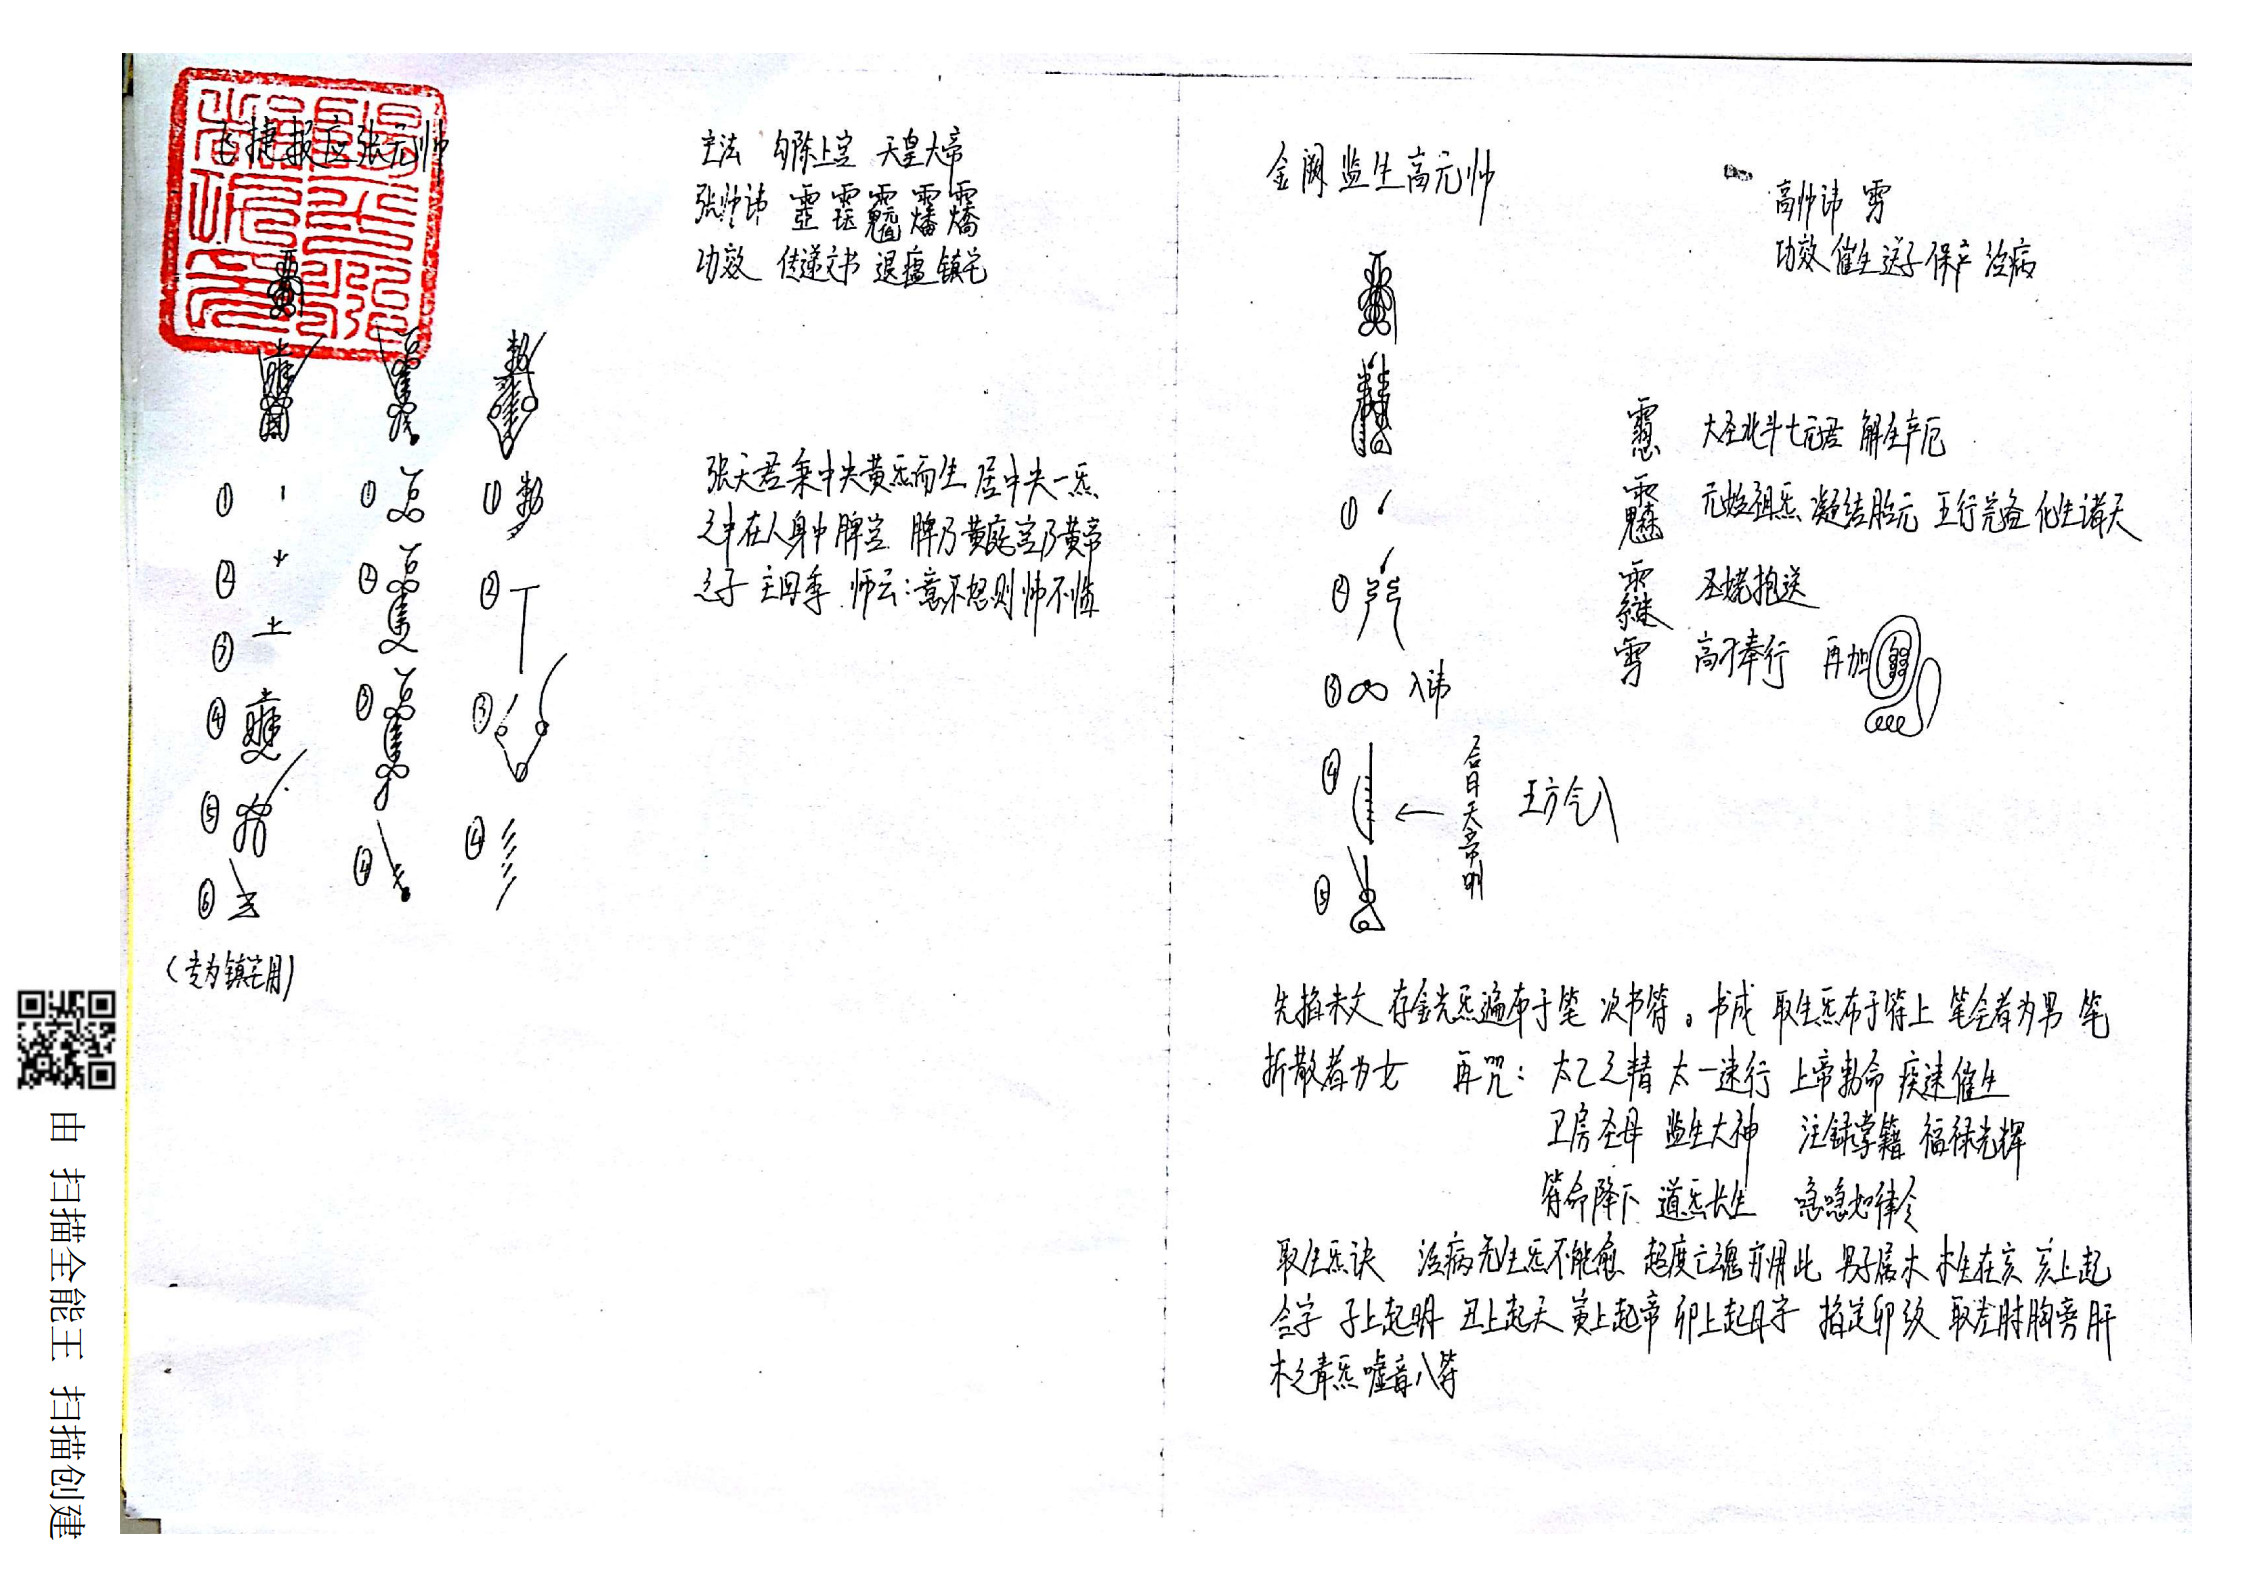 飞捷报应张元帅
主法 勾陈上宫 天皇大帝
张帅讳
功效 传递文书 退瘟 镇宅
① ① ① 勅
② ② ②
③ ③ ③
④ ④ ④
⑤
⑥
(专为镇宅用)
张天君秉中央黄炁而生 居中央一炁
之中在人身中脾宫 脾乃黄庭宫乃黄帝
之子 主四季 师云:意不怒则帅不临
金阙监生高元帅
高帅讳 雱
功效 催生 送子 保产 治病
①
②
③ 入讳
④
⑤
大圣北斗七元君 解生产厄
元始祖炁 凝结胎元 五行完备 化生诸天
圣姥抱送
雱 高刁奉行 再加
合日天帝明
先掐未文 存金光炁遍布于笔 次书符。书成 取生炁布于符上 笔全者为男 笔
折散者为女 再咒: 太乙之精 太一速行 上帝勅命 疾速催生
卫房圣母 监生大神 注録掌籍 福禄光辉
符命降下 道炁长生 急急如律令
取生炁诀 治病无生炁不能愈 超度亡魂亦用此 男子属木 木生在亥 亥上起
合字 子上起明 丑上起天 寅上起帝 卯上起日字 掐定卯纹 取左肘胸旁肝
木之青炁嘘音入符
由 扫描全能王 扫描创建